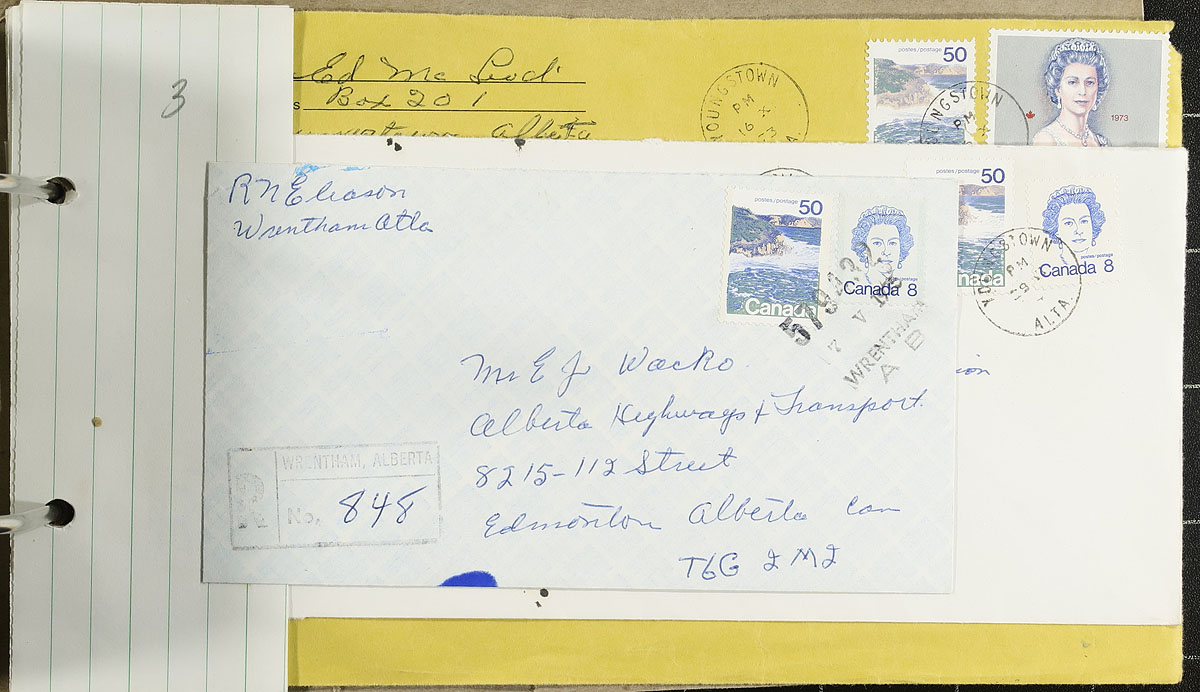 3
Ed Mc Leod
Box 201
Alberta
YOUNGSTOWN
PM
16 X
73
postes/postage
50
YOUNGSTOWN
PM
X
1973
postes/postage
50
Canada
postes/postage
Canada 8
YOUNGSTOWN
PM
ALTA.
ion
R N Eleason
Wrentham Alta
postes/postage
50
Canada
Canada 8
WRENTHAM
AB
Mr E J Wacko
Alberta Highways & Transport.
8215-112 Street
Edmonton Alberta Can
T6G 2M2
R
WRENTHAM, ALBERTA
No. 848